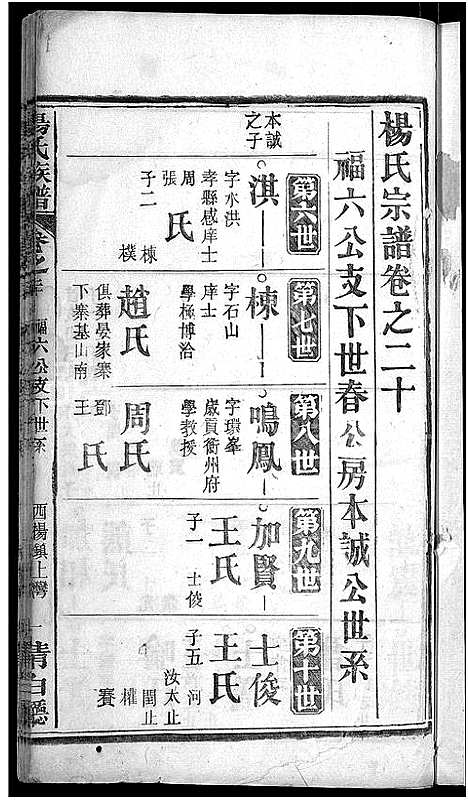 楊氏宗譜卷之二十
福六公支下世春公房本誠公世系
第六世
本誠之子
淇
字水洪
孝縣感庠士
周氏
張
子二
棟
樸
第七世
棟
字石山
庠士
學極博洽
趙氏
俱葬晏家寨
下寨基山南
第八世
鳴鳳
字環峯
歲貢衡州府
學教授
周氏
鄧氏
王
第九世
加賢
王氏
子一
士俊
第十世
士俊
王氏
子五
河
汝太止
閏止
權
賽
楊氏族譜
卷之二十
福六公支下世系
西楊鎮上灣
一
清白